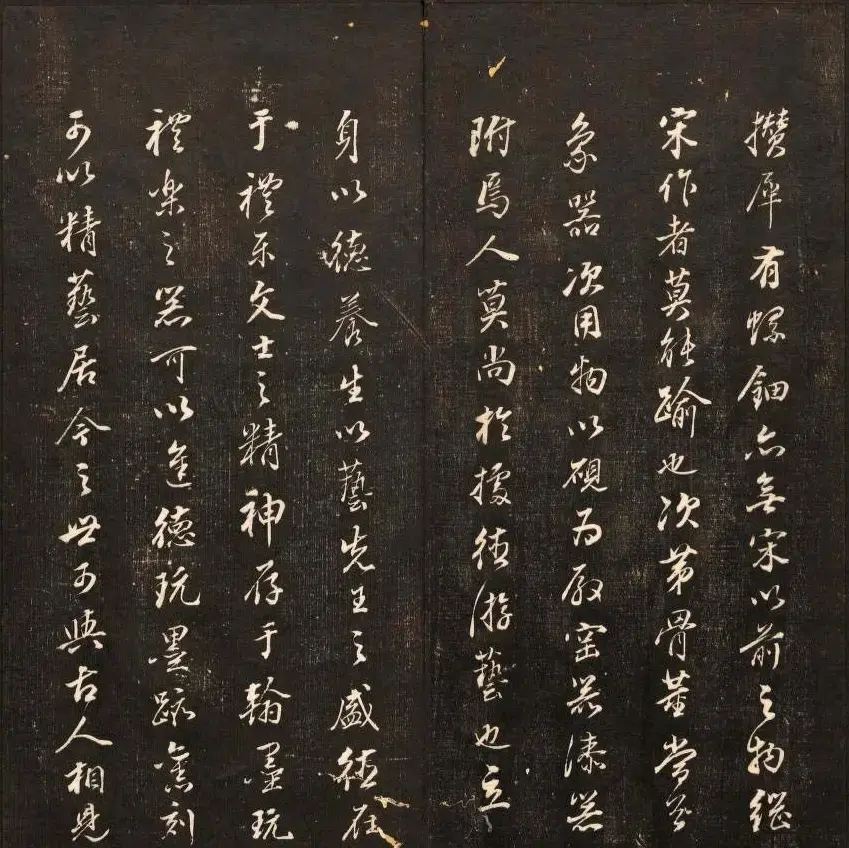 攢犀有螺鈿亦無宋以前之物繼
宋作者莫能踰也次第骨董當首
象器次用物以硯為殿窑器漆器
附焉人莫尚於據德游藝也立
身以德養生以藝先王之盛德在
于禮樂文士之精神存于翰墨玩
禮樂之器可以進德玩墨蹟舊刻
可以精藝居今之世可與古人相見